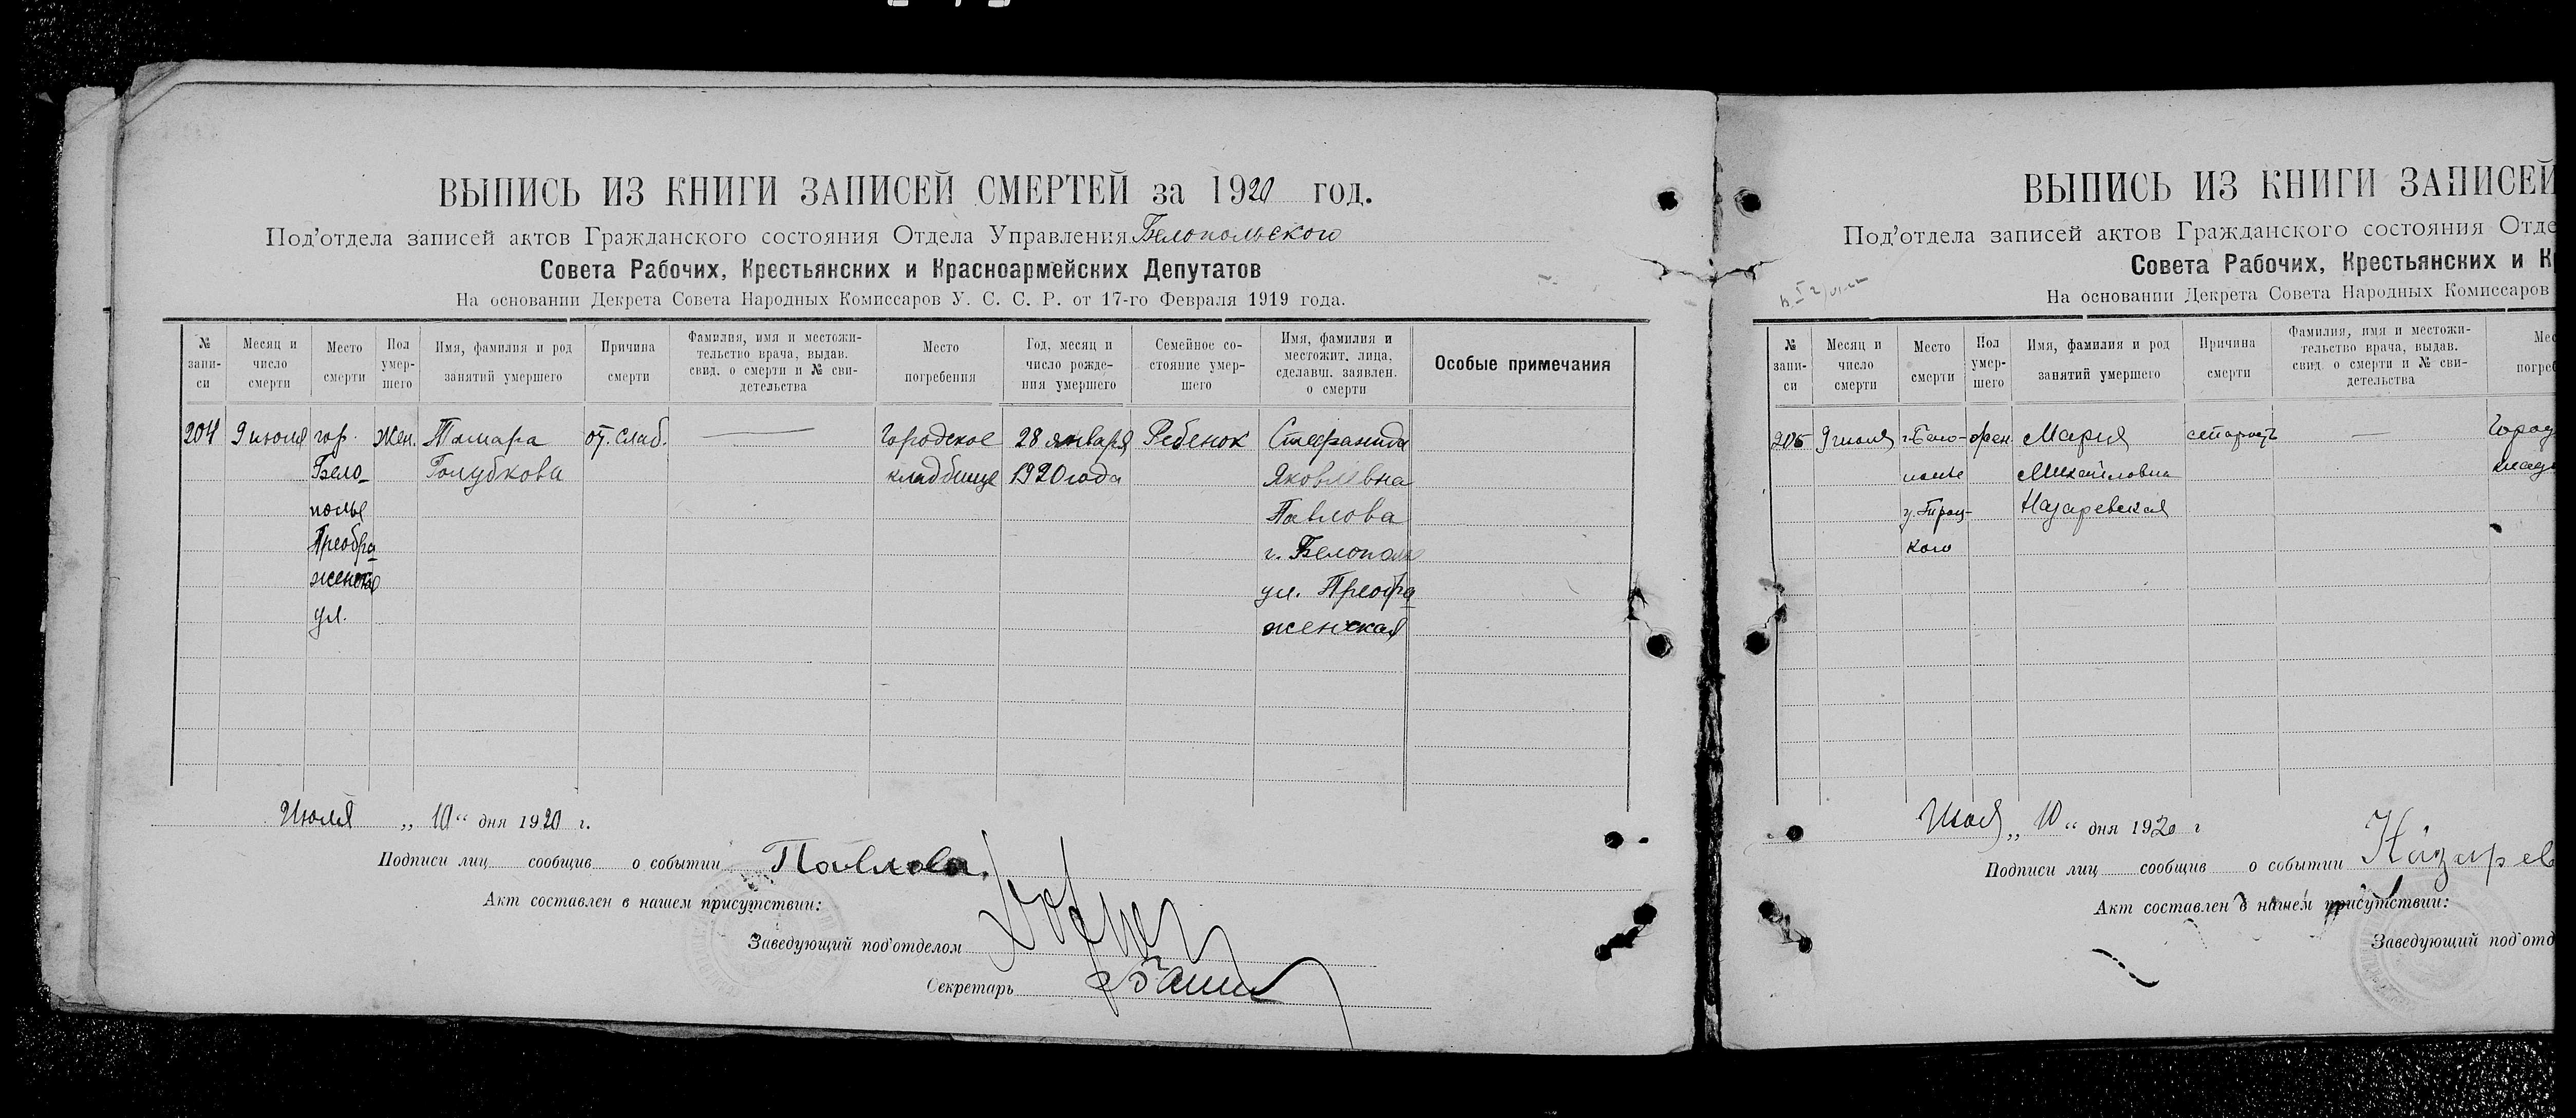 ВЫПИСЬ ИЗ КНИГИ ЗАПИСЕЙ СМЕРТЕЙ за 1920 год.
Под'отдела записей актов Гражданского состояния Отдела Управления Белопольского
Совета Рабочих, Крестьянских и Красноармейских Депутатов
На основании Декрета Совета Народных Комиссаров У. С. С. Р. от 17-го Февраля 1919 года.
№ запи-си
Месяц и число смерти
Место смерти
Пол умер-шего
Имя, фамилия и род занятий умершего
Причина смерти
Фамилия, имя и местожи-тельство врача, выдав. свид. о смерти и № сви-детельства
Место погребения
Год, месяц и число рожде-ния умершего
Семейное со-стояние умер-шего
Имя, фамилия и местожит. лица, сделавш. заявлен. о смерти
Особые примечания
204 9 июля гор. Жен. Тамара от. слаб. — Городское 28 января Ребенок Стефанида
Бело- Голубкова кладбище 1920 года Яковлевна
полье Павлова
Преобра г. Белополье
женская ул. Преобра
ул. женская
Июля „ 10 “ дня 1920 г.
Подписи лиц сообщив о событии Павлова.
Акт составлен в нашем присутствии:
Заведующий под'отделом
Секретарь
ВЫПИСЬ ИЗ КНИГИ ЗАПИСЕЙ
Под'отдела записей актов Гражданского состояния Отде
Совета Рабочих, Крестьянских и К
На основании Декрета Совета Народных Комиссаров
№ запи-си
Месяц и число смерти
Место смерти
Пол умер-шего
Имя, фамилия и род занятий умершего
Причина смерти
Фамилия, имя и местожи-тельство врача, выдав. свид. о смерти и № сви-детельства
Мес
погреб
205 9 июля г. Бело- жен Мария старость — Город
полье Михайловна кладб
у. Троц- Назаревская
кого
Июля „ 10 “ дня 1920 г
Подписи лиц сообщив о событии Назарев
Акт составлен в нашем присутствии:
Заведующий под'отд